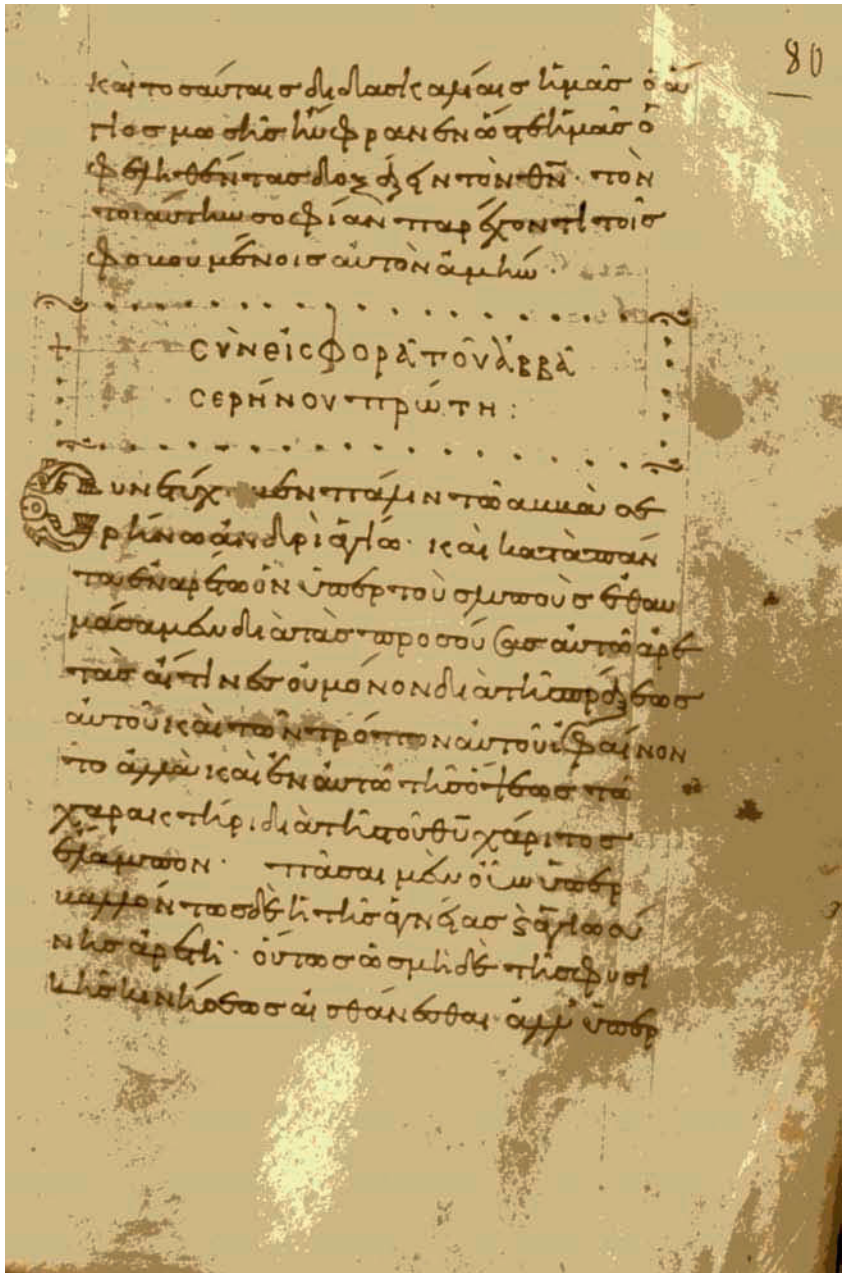 80
καὶ τοσαύταις διδασκαλίαις ἡμᾶς ὁ ἅ
φεληθέντας δοξάζειν τὸν θν̄· τὸν
τοιαύτην σοφίαν παρέχοντι τοῖς
φοβουμένοις αὐτὸν ἀμήν·
+ CΥΝΕΙCΦΟΡᾶ ΤΟῦ ἀΒΒᾶ
CΕΡΉΝΟΥ ΠΡΏΤΗ:
Συνετύχομεν πάλιν τῶ ἀββᾶ σε
ρήνω ἀνδρὶ ἁγίω· καὶ κατὰ πάν
τα ἐναρέτω ὃν ὑπὲρ τοὺς λιποὺς ἐθαυ
μάσαμεν διὰ τὰς προσούσας αὐτῶ ἀρε
τὰς αἵτινες οὐ μόνον διὰ τῆς πράξεως
αὐτοῦ καὶ τῶν τρόπον αὐτοῦ ἐφαίνον
το ἀλλὰ καὶ ἐν αὐτῶ τῆς ὄψεως τῶ
χαρακτῆρι διὰ τῆς τοῦ θῦ χάριτος
ἔλαμπον· πᾶσαι μὲν οὖν ὑπερ
βαλλόντως δὲ ἡ τῆς ἁγνείας καὶ ἁγιωσύ
νης ἀρετὴ· οὕτως ὡς μηδὲ τῆς φυσι
κῆς κινήσεως αἰσθάνεσθαι· ἀλλ' ὑπὲρ